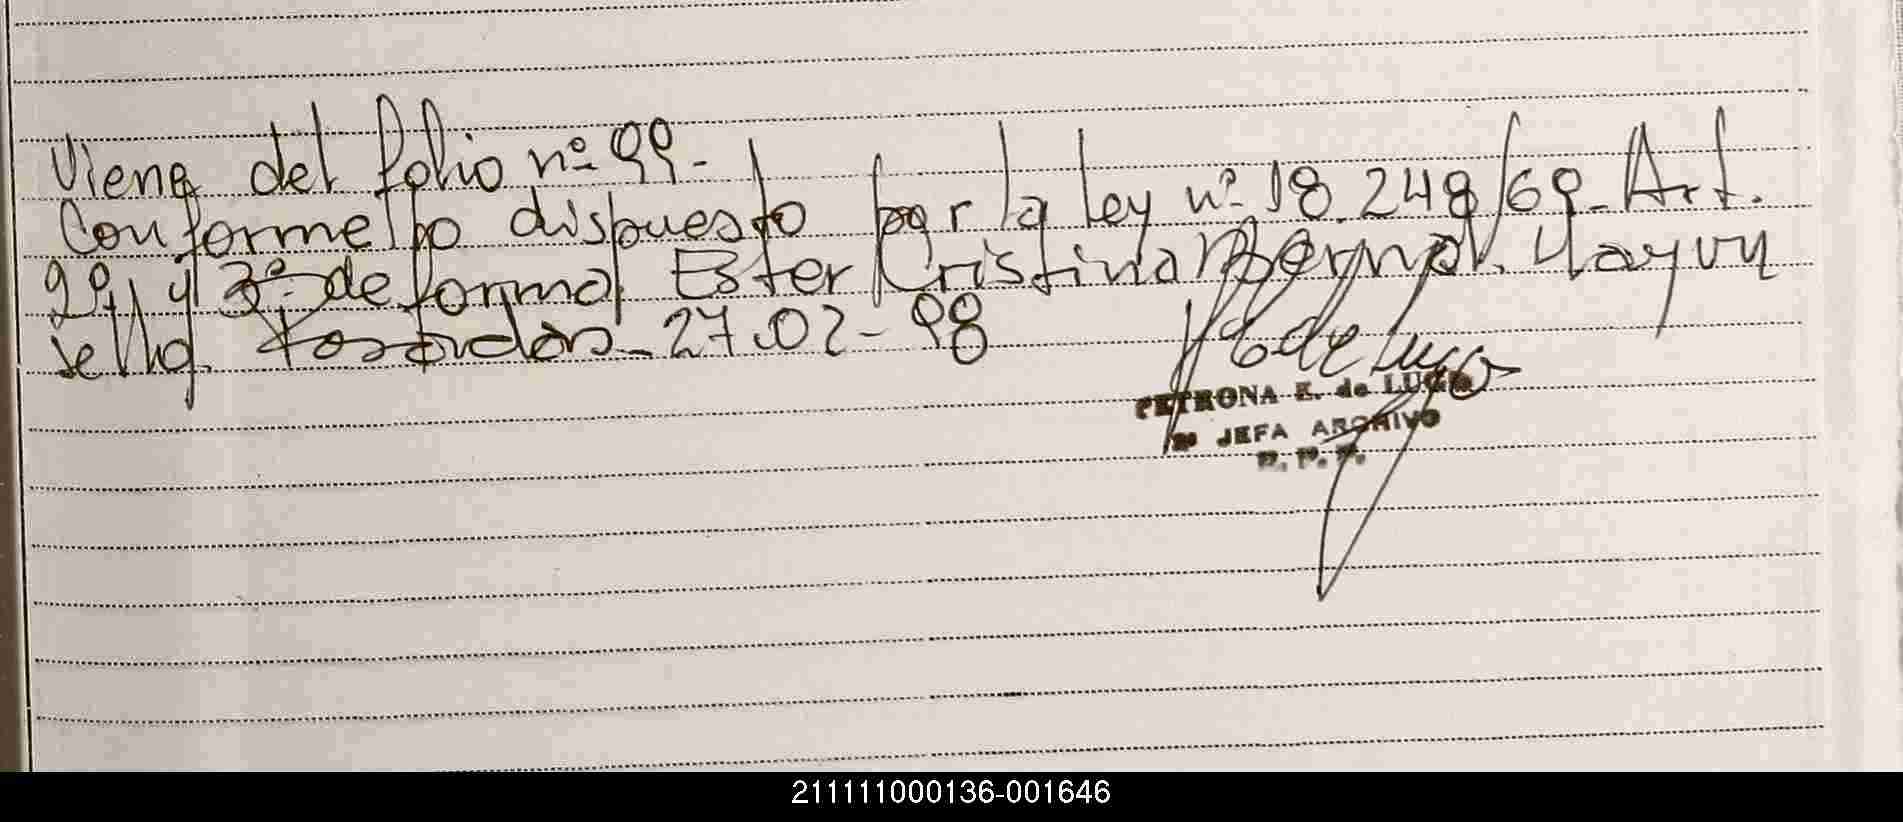 Viene del folio nº 99-
Conforme lo dispuesto por la ley nº 18.248/69_ Art.
2º y 3º de forma Ester Cristina Bernal. Hay un
sello. Posadas_ 27-02-98
PETRONA E. de LUGO
2º JEFA ARCHIVO
211111000136-001646